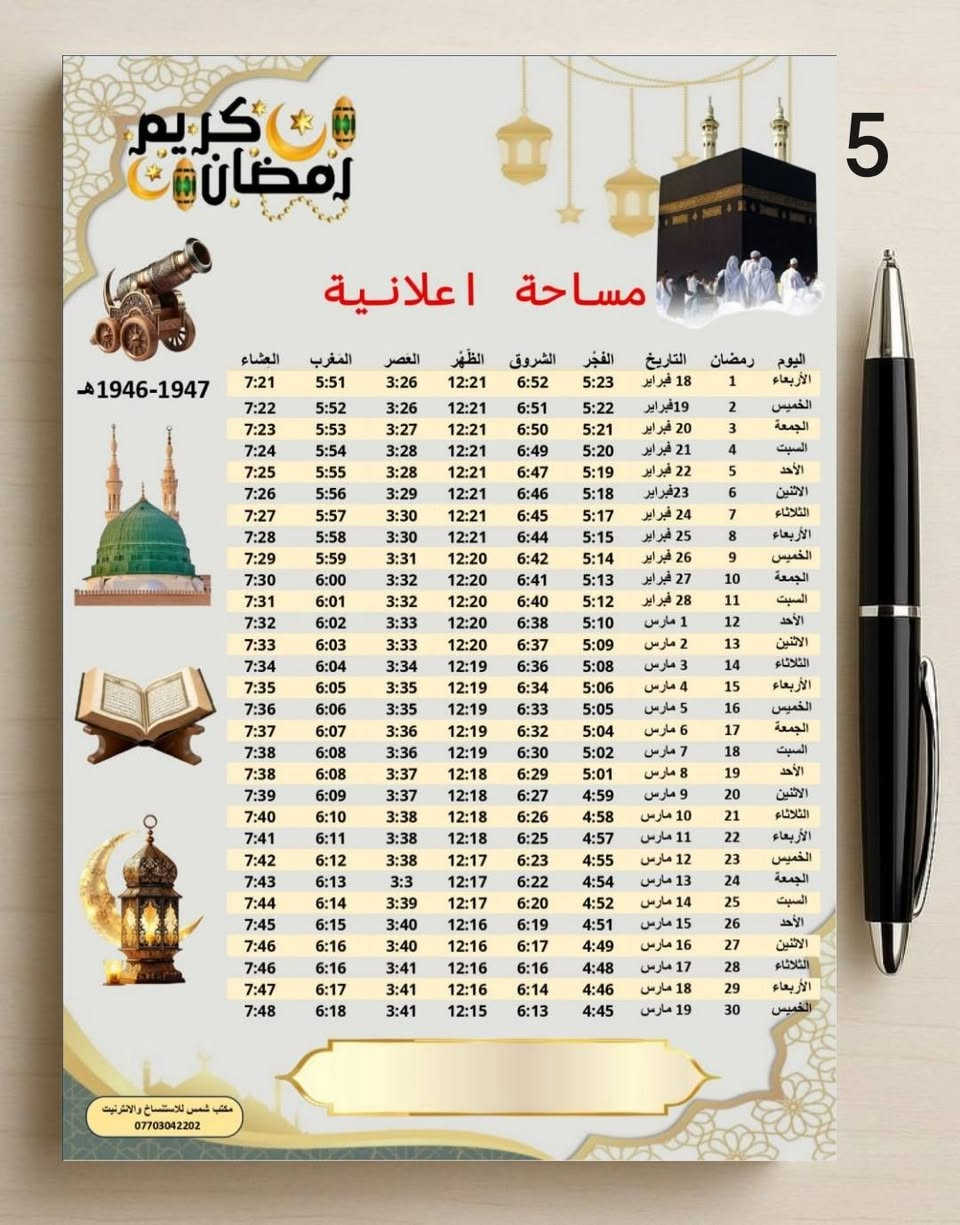 رمضان كريم
5
مساحة اعلانية
اليوم رمضان التاريخ الفَجْر الشروق الظُّهْر العَصر المَغرب العِشاء
الأربعاء 1 18 فبراير 5:23 6:52 12:21 3:26 5:51 7:21
1946-1947هـ
الخميس 2 19فبراير 5:22 6:51 12:21 3:26 5:52 7:22
الجمعة 3 20 فبراير 5:21 6:50 12:21 3:27 5:53 7:23
السبت 4 21 فبراير 5:20 6:49 12:21 3:28 5:54 7:24
الأحد 5 22 فبراير 5:19 6:47 12:21 3:28 5:55 7:25
الاثنين 6 23فبراير 5:18 6:46 12:21 3:29 5:56 7:26
الثلاثاء 7 24 فبراير 5:17 6:45 12:21 3:30 5:57 7:27
الأربعاء 8 25 فبراير 5:15 6:44 12:21 3:30 5:58 7:28
الخميس 9 26 فبراير 5:14 6:42 12:20 3:31 5:59 7:29
الجمعة 10 27 فبراير 5:13 6:41 12:20 3:32 6:00 7:30
السبت 11 28 فبراير 5:12 6:40 12:20 3:32 6:01 7:31
الأحد 12 1 مارس 5:10 6:38 12:20 3:33 6:02 7:32
الاثنين 13 2 مارس 5:09 6:37 12:20 3:33 6:03 7:33
الثلاثاء 14 3 مارس 5:08 6:36 12:19 3:34 6:04 7:34
الأربعاء 15 4 مارس 5:06 6:34 12:19 3:35 6:05 7:35
الخميس 16 5 مارس 5:05 6:33 12:19 3:35 6:06 7:36
الجمعة 17 6 مارس 5:04 6:32 12:19 3:36 6:07 7:37
السبت 18 7 مارس 5:02 6:30 12:19 3:36 6:08 7:38
الأحد 19 8 مارس 5:01 6:29 12:18 3:37 6:08 7:38
الاثنين 20 9 مارس 4:59 6:27 12:18 3:37 6:09 7:39
الثلاثاء 21 10 مارس 4:58 6:26 12:18 3:38 6:10 7:40
الأربعاء 22 11 مارس 4:57 6:25 12:18 3:38 6:11 7:41
الخميس 23 12 مارس 4:55 6:23 12:17 3:38 6:12 7:42
الجمعة 24 13 مارس 4:54 6:22 12:17 3:3 6:13 7:43
السبت 25 14 مارس 4:52 6:20 12:17 3:39 6:14 7:44
الأحد 26 15 مارس 4:51 6:19 12:16 3:40 6:15 7:45
الاثنين 27 16 مارس 4:49 6:17 12:16 3:40 6:16 7:46
الثلاثاء 28 17 مارس 4:48 6:16 12:16 3:41 6:16 7:46
الأربعاء 29 18 مارس 4:46 6:14 12:16 3:41 6:17 7:47
الخميس 30 19 مارس 4:45 6:13 12:15 3:41 6:18 7:48
مكتب شمس للاستنساخ والانترنيت
07703042202